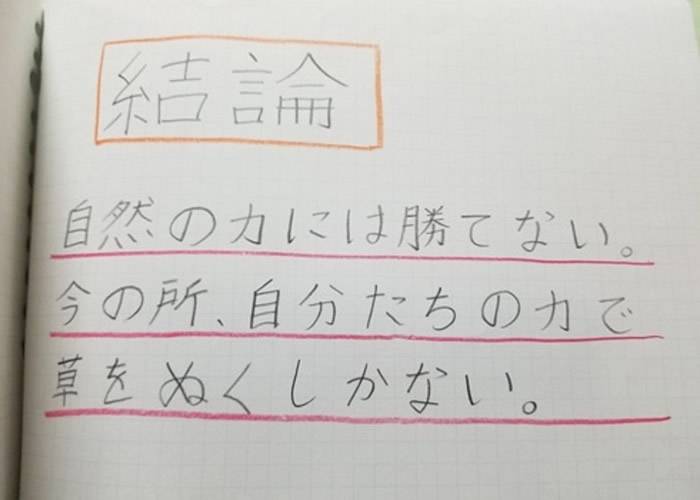 結論
自然の力には勝てない。
今の所、自分たちの力で
草をぬくしかない。